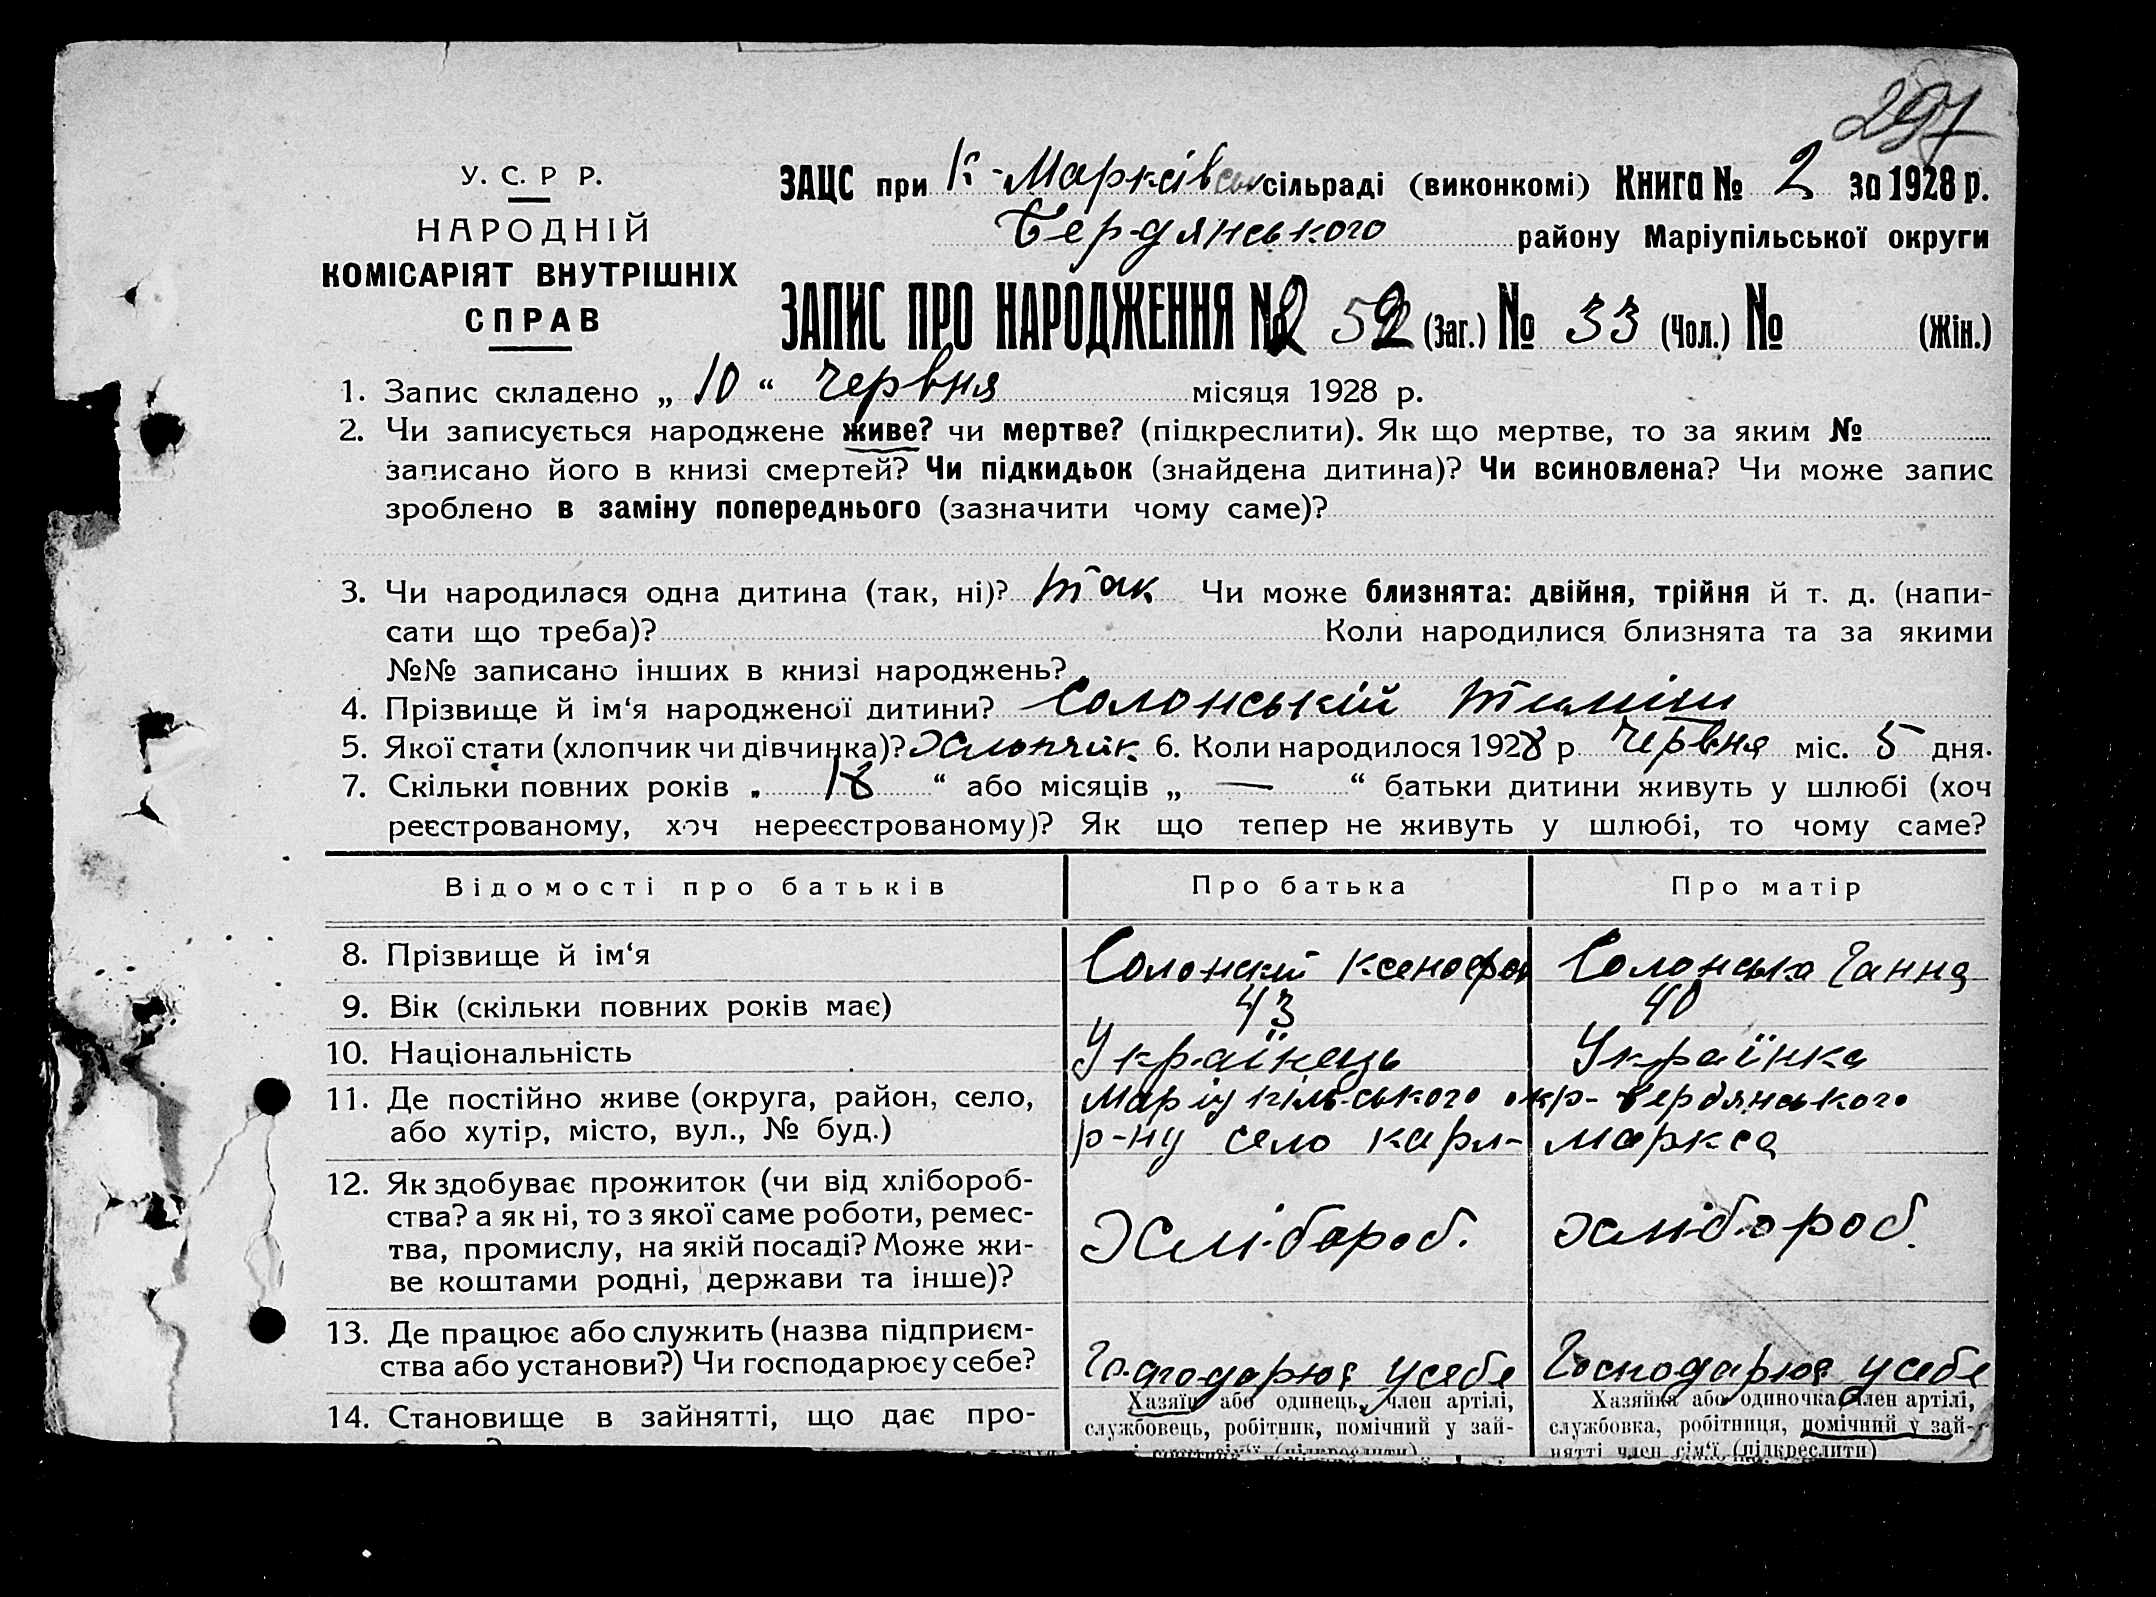 297
У. С. Р Р.
НАРОДНІЙ
КОМІСАРІЯТ ВНУТРІШНІХ
СПРАВ
ЗАЦС при К-Марксівській сільраді (виконкомі) Книга № 2 за 1928 р.
Бердянського району Маріупільської округи
ЗАПИС ПРО НАРОДЖЕННЯ № 52 (Заг.) № 33 (Чол.) № (Жін.)
1. Запис складено „ 10 “ Червня місяця 1928 р.
2. Чи записується народжене живе? чи мертве? (підкреслити). Як що мертве, то за яким №
записано його в книзі смертей? Чи підкидьок (знайдена дитина)? Чи всиновлена? Чи може запис
зроблено в заміну попереднього (зазначити чому саме)?
3. Чи народилася одна дитина (так, ні)? так Чи може близнята: двійня, трійня й т. д. (напи-
сати що треба)? Коли народилися близнята та за якими
№№ записано інших в книзі народжень?
4. Прізвище й ім‘я народженої дитини? Солонській Тиміш
5. Якої стати (хлопчик чи дівчинка)? Хлопчик 6. Коли народилося 1928 р Червня міс. 5 дня.
7. Скільки повних років „ 18 “ або місяців „ — “ батьки дитини живуть у шлюбі (хоч
реєстрованому, хоч нереєстрованому)? Як що тепер не живуть у шлюбі, то чому саме?
Відомості про батьків Про батька Про матір
8. Прізвище й ім‘я Солонский Ксенофон Солонська Ганна
9. Вік (скільки повних років має) 43 40
10. Національність Українець Українка
11. Де постійно живе (округа, район, село, Маріупільського окр- Бердянського
або хутір, місто, вул., № буд.) р-ну село Карл- Маркса
12. Як здобуває прожиток (чи від хлібороб-
ства? а як ні, то з якої саме роботи, ремес- Хлібороб. хлібороб.
тва, промислу, на якій посаді? Може жи-
ве коштами родні, держави та інше)?
13. Де працює або служить (назва підприєм-
ства або установи?) Чи господарює у себе? Господарює у себе Господарює у себе
14. Становище в зайнятті, що дає про- Хазяїн або одинець, член артілі, Хазяйка або одиночка, член артілі,
службовець, робітник, помічний у зай- службовка, робітниця, помічний у зай-
нятті член сім‘ї (підкреслити)